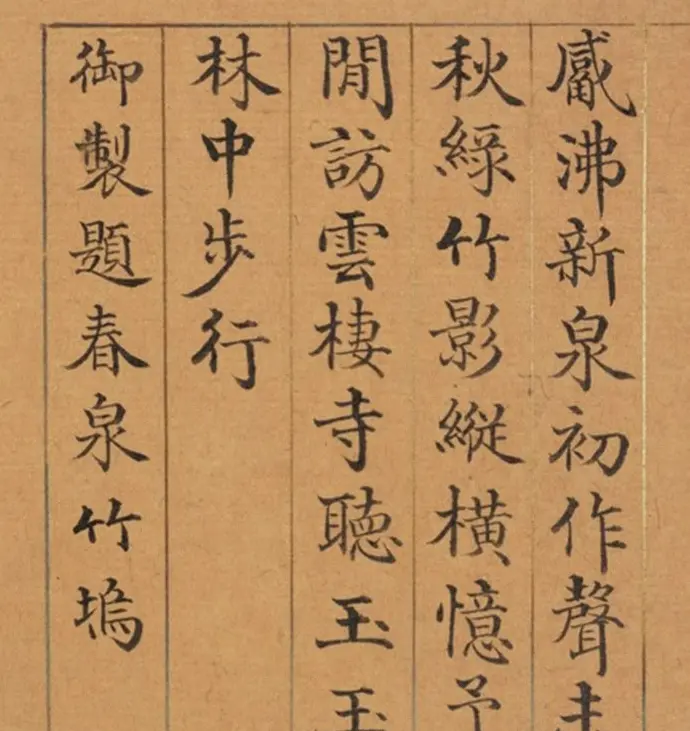 觱沸新泉初作聲
秋綠竹影縱橫憶予
閒訪雲棲寺聽玉
林中步行
御製題春泉竹塢